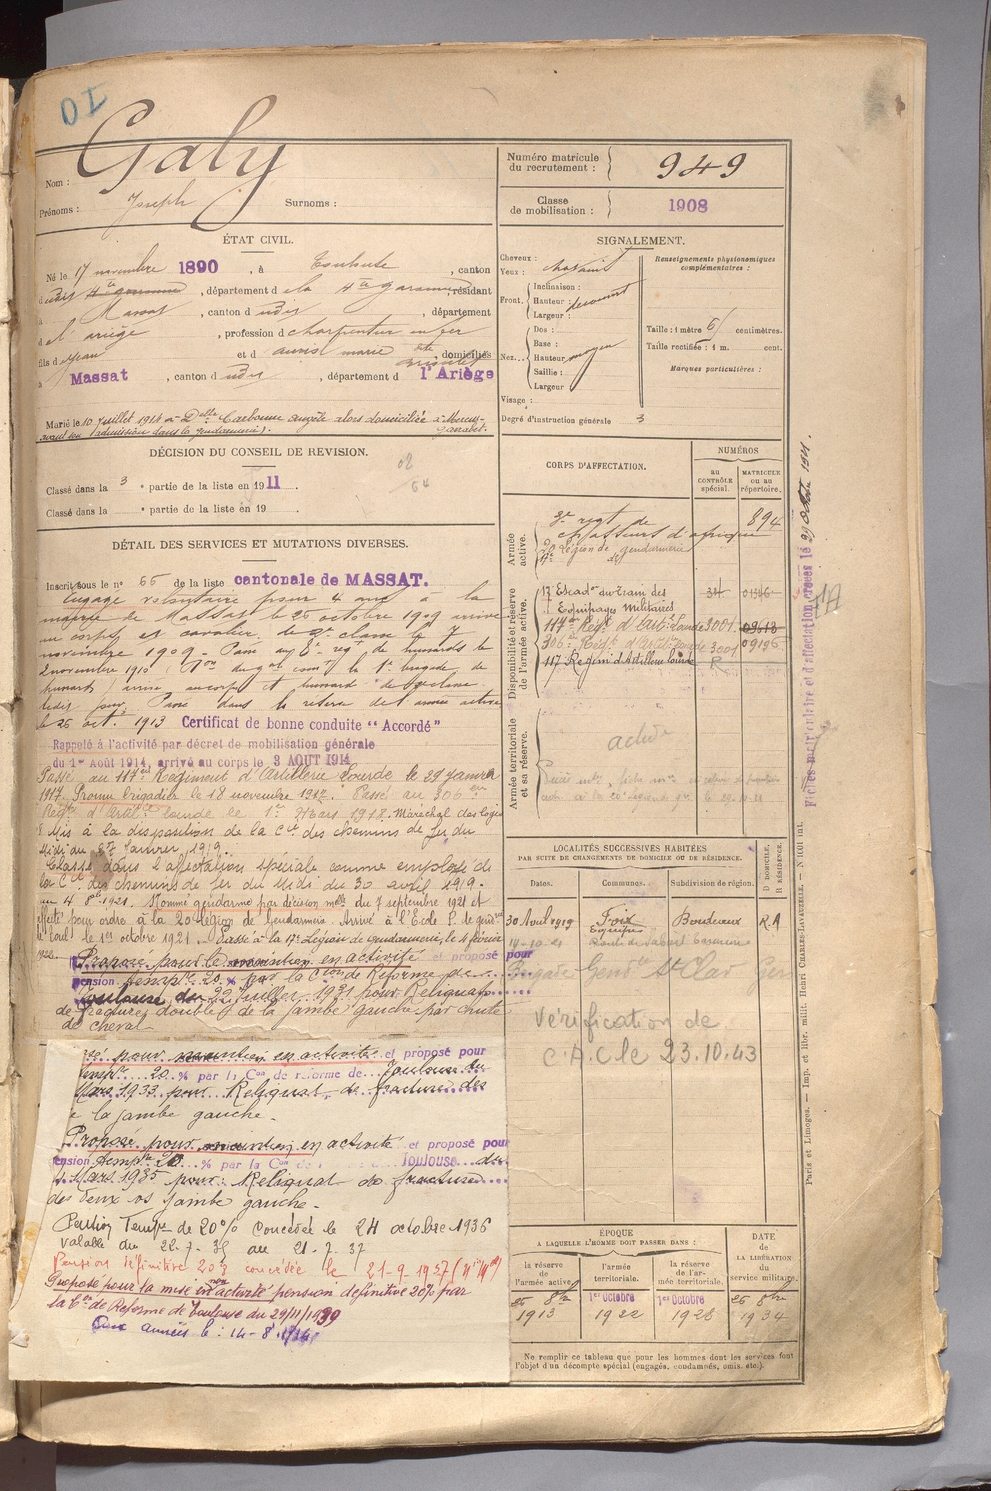 10
Nom : Galy
Prénoms : Joseph Surnoms :
Numéro matricule du recrutement : 949
Classe de mobilisation : 1908
ÉTAT CIVIL.
Né le 17 novembre 1890, à Toulouse, canton
dudis, département de la Hte Garonne, résidant
à Massat, canton dudis, département
de l'ariège, profession de charpentier en fer
fils de Jean et d marie, domiciliés
à Massat, canton dudis, département de l'Ariège
Marié le 10 juillet 1914 à Delle Carbonne alors domiciliée à Mercus-
Garrabet.
avant son admission dans la gendarmerie).
DÉCISION DU CONSEIL DE REVISION.
Classé dans la 3e partie de la liste en 1911
Classé dans la e partie de la liste en 19
02
64
DÉTAIL DES SERVICES ET MUTATIONS DIVERSES.
Inscrit sous le n° 66 de la liste cantonale de MASSAT.
Engagé volontaire pour 4 ans à la
mairie de Massat le 26 octobre 1909 arrivé
au corps et cavalier de 2e classe le 7
novembre 1909. Passé au régt de hussards le
2 novembre 1910
hussards arrivé au corps et hussard de 2e classe
ledit jour. Passé dans la réserve de l'armée active
le 26 oct. 1913 Certificat de bonne conduite "Accordé"
Rappelé à l'activité par décret de mobilisation générale
du 1er Août 1914, arrivé au corps le 3 AOUT 1914
Passé au 117e Régiment d'Artillerie Lourde le 29 janvier
1917. Promu brigadier le 18 novembre 1917. Passé au 306e
Régt d'Artie lourde le 1er Mars 1918. Maréchal des Logis
Mis à la disposition de la Cie des chemins de fer du
Midi du 27 Janvier 1919.
Classé dans l'affectation spéciale comme employé de
la Cie des chemins de fer du Midi du 30 avril 1919.
au 4 8bre 1921. Nommé gendarme par décision mlle du 7 septembre 1921 et
affecté pour ordre à la 20e légion de Gendarmerie. Arrivé à l'Ecole P. de gendrie
de Toul le 1er octobre 1921. Passé à la 17e Légion de gendarmerie, le 4 février
Proposé pour le maintien en activité et proposé pour
pension temp. 20 % par la Cion de Réforme de
Toulouse du 22 Juillet 1931 pour Reliquat
de fractures double de la jambe gauche par chute
de cheval
pour maintien en activité et proposé pour
temp. 20 % par la Con de réforme de Toulouse du
Mars 1933 pour Reliquat de fracture des
la jambe gauche.
Proposé pour maintien en activité et proposé pour
pension temp. 20 % par la Con de Toulouse du
Mars 1935 pour : Reliquat de fracture
des deux os jambe gauche.
Pension Tempre de 20% concédée le 24 octobre 1936
valable du 22-7-35 au 21-7-37
Pension définitive 20% concédée le 21-9-1937
Proposé pour la mise en non activité pension définitive 20% par
la Con de Réforme de Toulouse du 29/11/1939
SIGNALEMENT.
Cheveux :
Yeux : chatain
Front. Inclinaison :
Hauteur : découvert
Largeur :
Nez... Dos :
Base :
Hauteur moyen
Saillie :
Largeur
Visage :
Renseignements physionomiques
complémentaires :
Taille : 1 mètre 6 centimètres.
Taille rectifiée : 1 m. cent.
Marques particulières :
Degré d'instruction générale 3
CORPS D'AFFECTATION.
NUMÉROS
AU CONTRÔLE spécial.
MATRICULE ou au répertoire.
Armée active.
3e regt de
chasseurs d'afrique 894
20 Légion de gendarmerie
17e
Disponibilité et réserve de l'armée active.
17e Escadon du Train des
Equipages Militaires
117e Régt d'Artie Lourde 3001 09613
306e Régt d'Artie Lourde 3001 09196
117 Regim d'Artillerie lourde R
Armée territoriale et sa réserve.
LOCALITÉS SUCCESSIVES HABITÉES
PAR SUITE DE CHANGEMENTS DE DOMICILE OU DE RÉSIDENCE.
Dates. Communes. Subdivision de région. D DOMICILE, R RÉSIDENCE.
30 Avril 1919 Foix Bordeaux R.A
14-10-21
Brigade Gendie St Clar Gers
Vérification de
C.A.C le 23.10.43
ÉPOQUE
A LAQUELLE L'HOMME DOIT PASSER DANS :
la réserve de l'armée active
l'armée territoriale.
la réserve de l'armée territoriale.
DATE DE LA LIBÉRATION du service militaire.
26 8bre 1913
1er Octobre 1922
1er Octobre 1928
26 8bre 1934
Ne remplir ce tableau que pour les hommes dont les services font
l'objet d'un décompte spécial (engagés, condamnés, omis, etc.).
Paris et Limoges. — Imp. et libr. milit. Henri CHARLES-LAVAUZELLE.